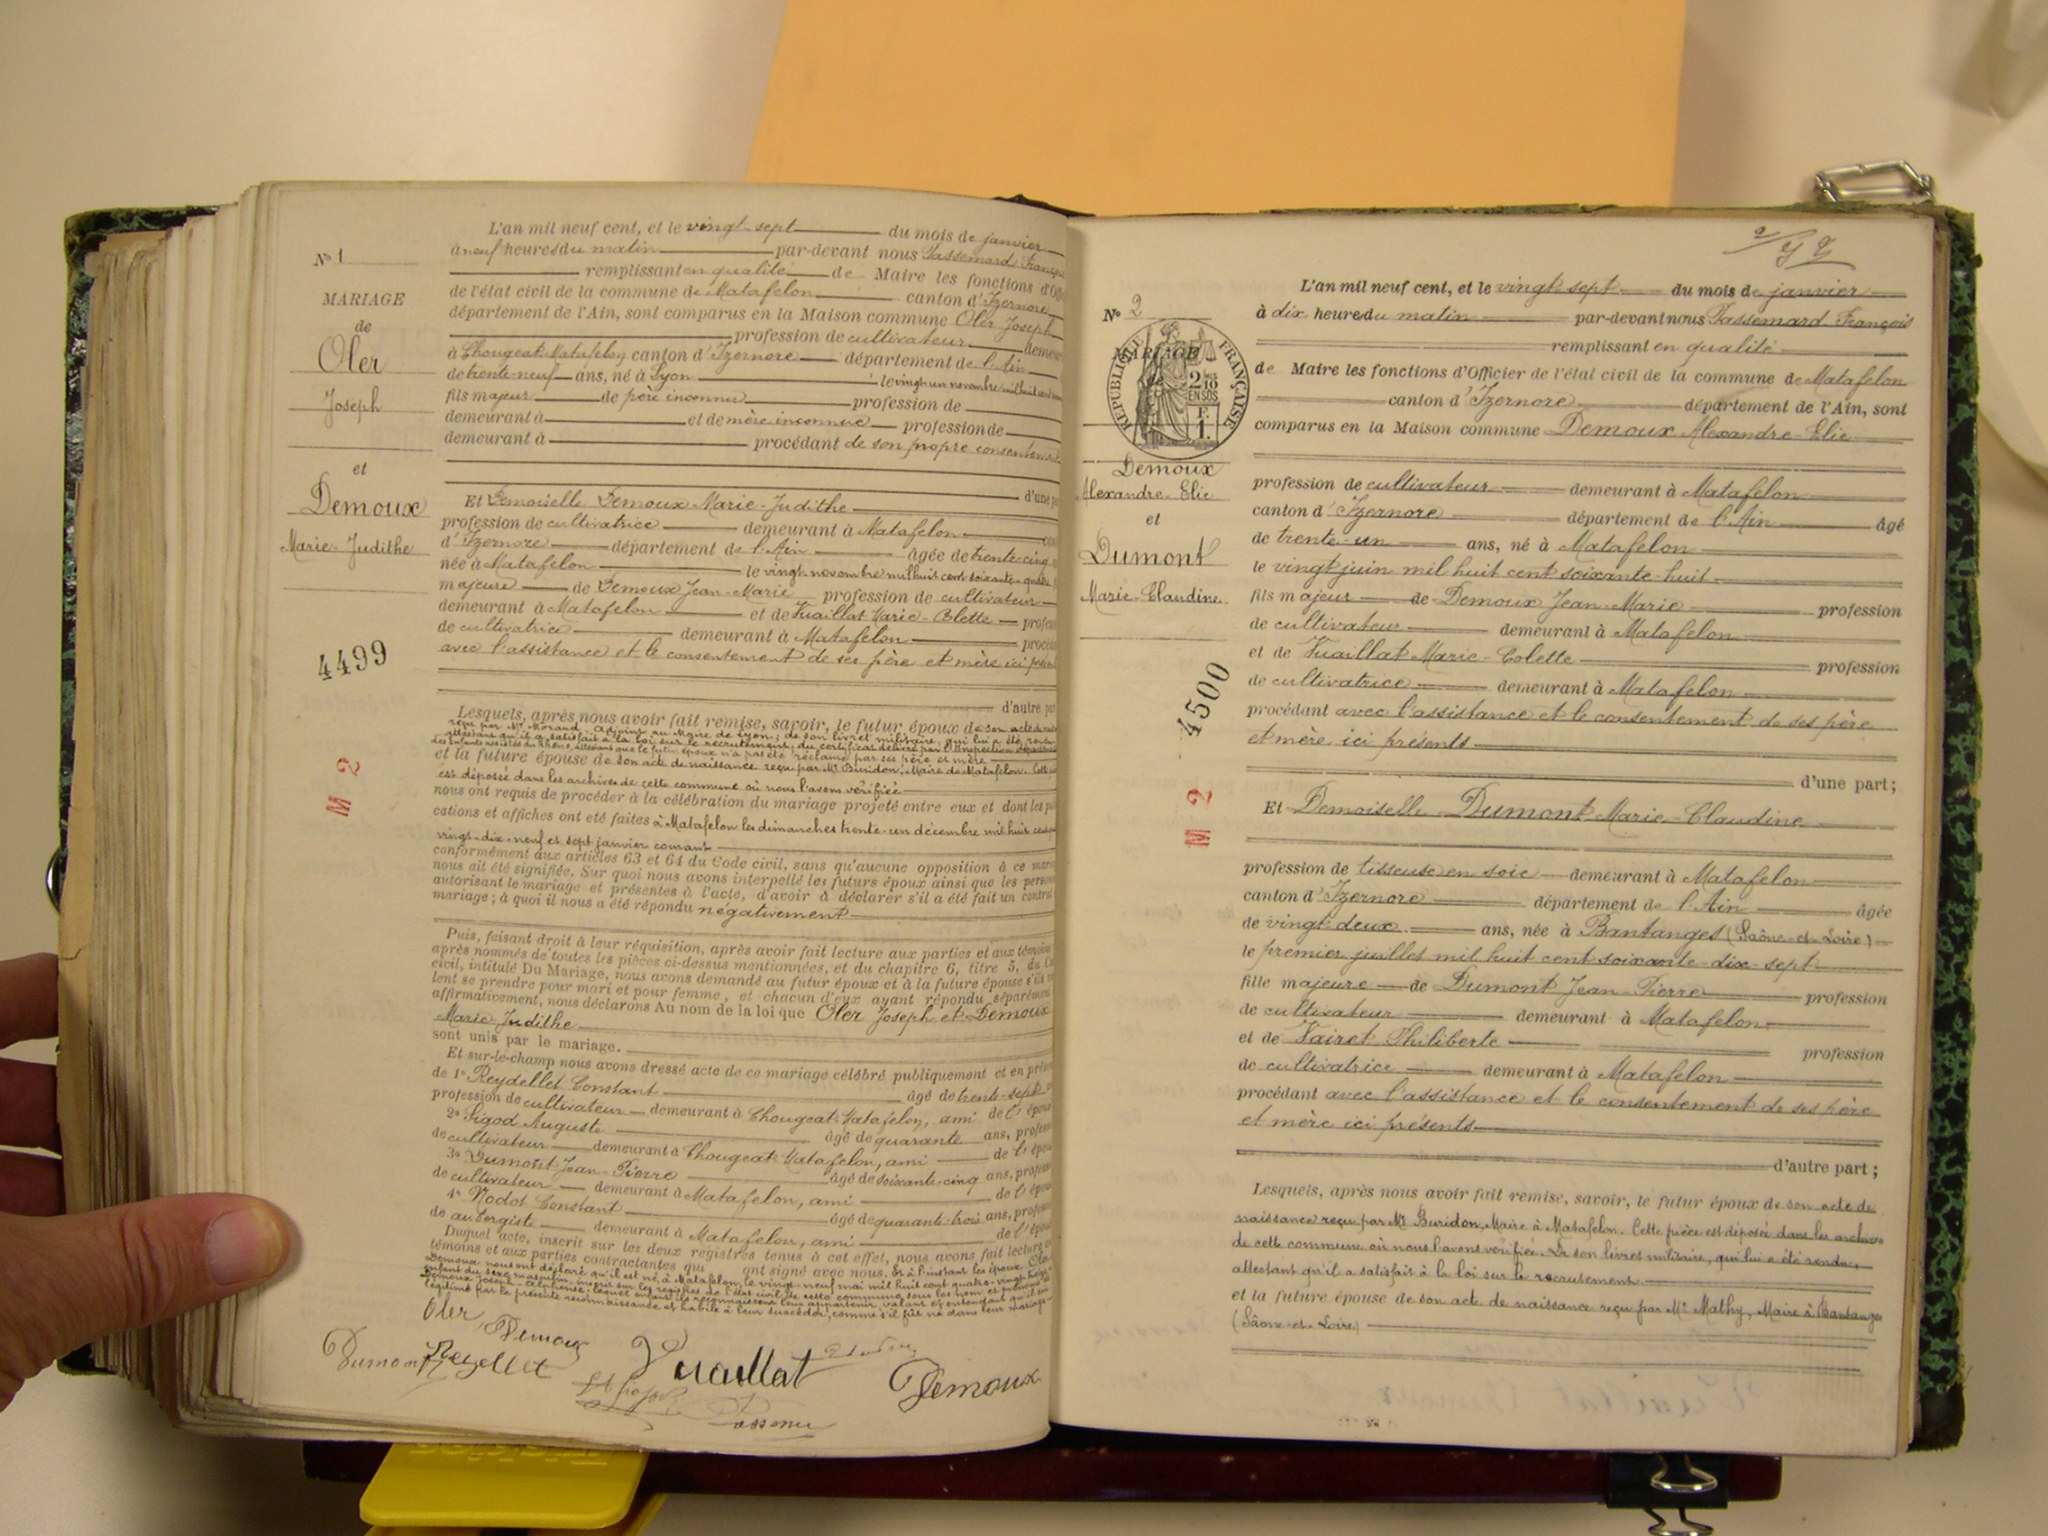 L'an mil neuf cent, et le vingt-sept du mois de janvier
Nº 1
à neuf heures du matin par-devant nous Tassemard
remplissant en qualité de Maire les fonctions
de l'état civil de la commune de Matafelon canton d'Izernore
MARIAGE
département de l'Ain, sont comparus en la Maison commune Oler Joseph
de
profession de cultivateur
Oler
à Chougeat-Matafelon canton d'Izernore département de l'Ain
de trente-neuf ans, né à Lyon le vingt un novembre
fils majeur de père inconnu profession de
Joseph
demeurant à et de mère inconnue profession de
demeurant à procédant de son propre
et
d'une
Demoux
Et Demoiselle Demoux Marie-Judithe
profession de cultivatrice demeurant à Matafelon
Marie-Judithe
d'Izernore département de l'Ain âgée de trente-cinq
née à Matafelon le vingt novembre mil huit cent soixante-quatre
majeure de Demoux Jean-Marie profession de cultivateur
demeurant à Matafelon et de Vuaillat Marie-Colette
de cultivatrice demeurant à Matafelon
4499
avec l'assistance et le consentement de ses père et mère ici
d'autre
Lesquels, après nous avoir fait remise, savoir, le futur époux de son acte de
reçu par Mr Morand, Adjoint au Maire de Lyon ; de son livret militaire, qui lui a été
attestant qu'il a satisfait à la loi sur le recrutement ; du certificat délivré par l'Inspection
des Enfants assistés du Rhône, attestant que le futur époux n'a pas été réclamé par ses père et mère
et la future épouse de son acte de naissance reçu par Mr Buridon, Maire de Matafelon. Cette
est déposée dans les archives de cette commune où nous l'avons vérifiée
M 2
nous ont requis de procéder à la célébration du mariage projeté entre eux et dont les
cations et affiches ont été faites à Matafelon les dimanches trente-un décembre mil huit cent
vingt-dix-neuf et sept janvier courant
conformément aux articles 63 et 64 du Code civil, sans qu'aucune opposition à ce
nous ait été signifiée. Sur quoi nous avons interpellé les futurs époux ainsi que les
autorisant le mariage et présentes à l'acte, d'avoir à déclarer s'il a été fait un
mariage ; à quoi il nous a été répondu négativement
Puis, faisant droit à leur réquisition, après avoir fait lecture aux parties et aux
après nommés de toutes les pièces ci-dessus mentionnées, et du chapitre 6, titre 5, du
civil, intitulé Du Mariage, nous avons demandé au futur époux et à la future épouse s'ils
lent se prendre pour mari et pour femme, et chacun d'eux ayant répondu séparément
affirmativement, nous déclarons Au nom de la loi que Oler Joseph et Demoux
Marie-Judithe
sont unis par le mariage.
Et sur-le-champ nous avons dressé acte de ce mariage célébré publiquement et en
de 1º Reydellet Constant âgé de trente-sept
profession de cultivateur demeurant à Chougeat-Matafelon, ami de l'
2º Sigod Auguste âgé de quarante ans,
de cultivateur demeurant à Chougeat-Matafelon, ami de l'
3º Dumont Jean-Pierre âgé de soixante-cinq ans,
de cultivateur demeurant à Matafelon, ami de l'
4º Nodot Constant âgé de quarante-trois ans,
de aubergiste demeurant à Matafelon, ami de l'
Duquel acte, inscrit sur les deux registres tenus à cet effet, nous avons fait lecture
témoins et aux parties contractantes qui ont signé avec nous. Et à l'instant les époux
Demoux nous ont déclaré qu'il est né à Matafelon, le vingt-neuf mai mil huit cent quatre-vingt
enfant du sexe masculin, inscrit sur les registres de l'état civil de cette commune, sous les nom et prénoms
Demoux Joseph-Alphonse ; lequel enfant ils reconnaissent leur appartenir, valant et entendant qu'il
légitimé par la présente reconnaissance et habile à leur succéder, comme s'il fût né dans leur mariage
Oler Demoux
Dumont Reydellet Vuaillat Demoux
2/
Nº 2
L'an mil neuf cent, et le vingt-sept du mois de janvier
à dix heures du matin par-devant nous Tassemard François
MARIAGE
RÉPUBLIQUE FRANÇAISE
2/10 EN SUS
1 F.
remplissant en qualité
de Maire les fonctions d'Officier de l'état civil de la commune de Matafelon
canton d'Izernore département de l'Ain, sont
comparus en la Maison commune Demoux Alexandre-Elie
Demoux
Alexandre-Elie
et
Dumont
Marie-Claudine
profession de cultivateur demeurant à Matafelon
canton d'Izernore département de l'Ain âgé
de trente-un ans, né à Matafelon
le vingt juin mil huit cent soixante-huit
fils majeur de Demoux Jean-Marie profession
de cultivateur demeurant à Matafelon
et de Vuaillat Marie-Colette profession
de cultivatrice demeurant à Matafelon
4500
procédant avec l'assistance et le consentement de ses père
et mère ici présents
d'une part ;
M 2
Et Demoiselle Dumont Marie-Claudine
profession de tisseuse en soie demeurant à Matafelon
canton d'Izernore département de l'Ain âgée
de vingt-deux ans, née à Bantanges (Saône-et-Loire)
le premier juillet mil huit cent soixante-dix-sept
fille majeure de Dumont Jean-Pierre profession
de cultivateur demeurant à Matafelon
et de Vairet Philiberte profession
de cultivatrice demeurant à Matafelon
procédant avec l'assistance et le consentement de ses père
et mère ici présents
d'autre part ;
Lesquels, après nous avoir fait remise, savoir, le futur époux de son acte de
naissance reçu par Mr Buridon, Maire à Matafelon. Cette pièce est déposée dans les archives
de cette commune où nous l'avons vérifiée. De son livret militaire, qui lui a été rendu,
attestant qu'il a satisfait à la loi sur le recrutement.
et la future épouse de son acte de naissance reçu par Mr Mathy, Maire à Bantanges
(Saône-et-Loire)